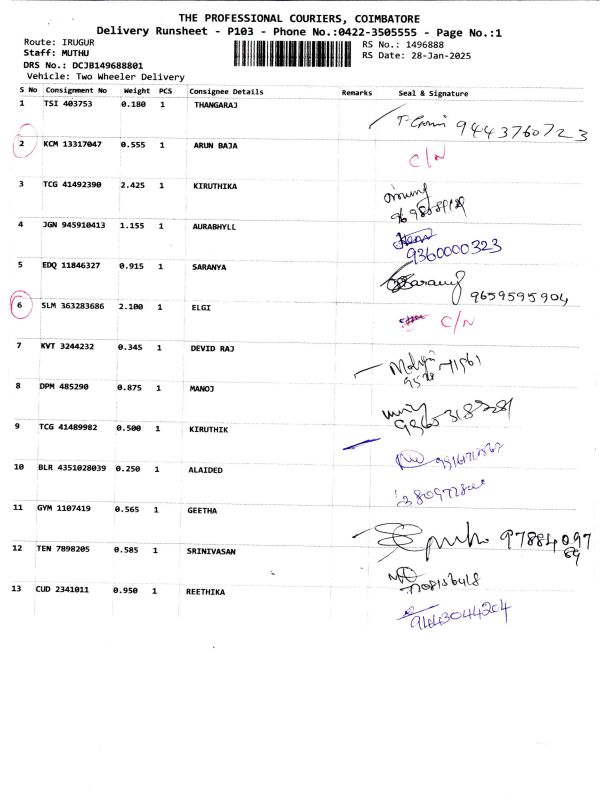 THE PROFESSIONAL COURIERS, COIMBATORE
Delivery Runsheet - P103 - Phone No.:0422-3505555 - Page No.:1
Route: IRUGUR RS No.: 1496888
Staff: MUTHU RS Date: 28-Jan-2025
DRS No.: DCJB149688801
Vehicle: Two Wheeler Delivery
S No Consignment No Weight PCS Consignee Details Remarks Seal & Signature
1 TSI 403753 0.180 1 THANGARAJ
9443760723
2 KCM 13317047 0.555 1 ARUN BAJA
C/N
3 TCG 41492390 2.425 1 KIRUTHIKA
4 JGN 945910413 1.155 1 AURABHYLL
9360000323
5 EDQ 11846327 0.915 1 SARANYA
9659595904
6 SLM 363283686 2.100 1 ELGI
C/N
7 KVT 3244232 0.345 1 DEVID RAJ
8 DPM 485290 0.875 1 MANOJ
9 TCG 41489982 0.500 1 KIRUTHIK
10 BLR 4351028039 0.250 1 ALAIDED
11 GYM 1107419 0.565 1 GEETHA
97884097
89
12 TEN 7898205 0.585 1 SRINIVASAN
13 CUD 2341011 0.950 1 REETHIKA
9443044204